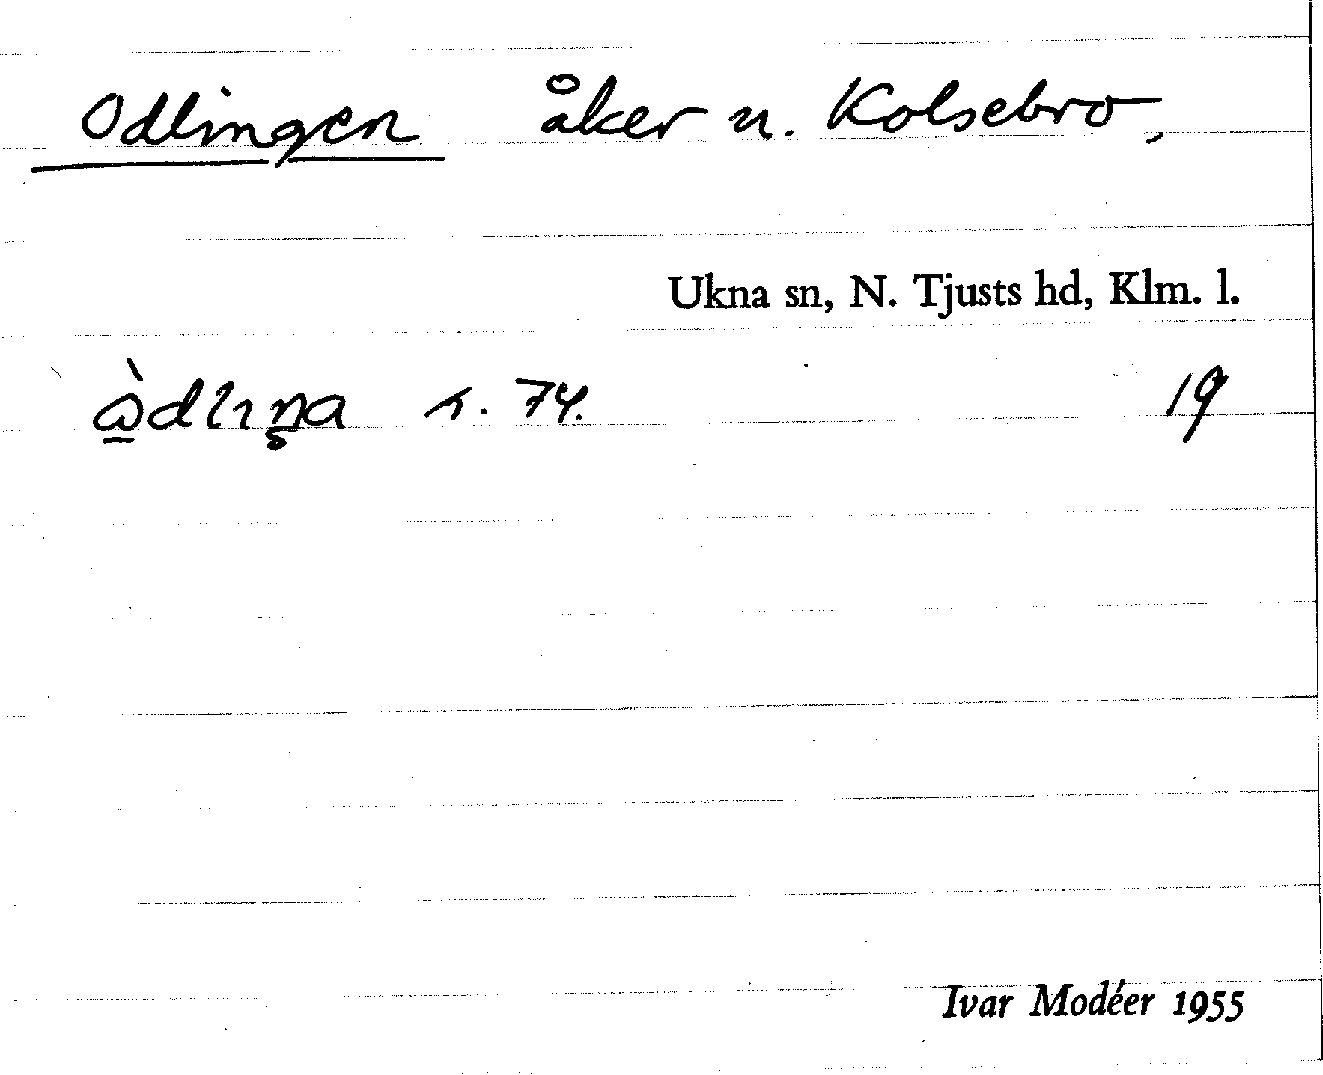 Odlingen åker u. Kolsebro,
Ukna sn, N. Tjusts hd, Klm. l.
s. 74. 19
Ivar Modéer 1955